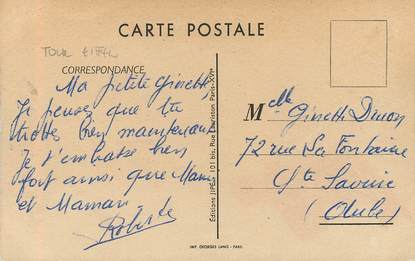 CARTE POSTALE
TOUR EIFFEL
CORRESPONDANCE
Ma petite Ginette,
Je pense que tu
trouves bien maintenant
Je t'embrasse bien
fort ainsi que Mamie
et Maman.
Roberte
Éditions JIPÉ, 101 bis, Rue Lauriston Paris-XVIᵉ
Melle Ginette
72 rue La Fontaine
Ste Savine
(Aube)
IMP. GEORGES LANG - PARIS